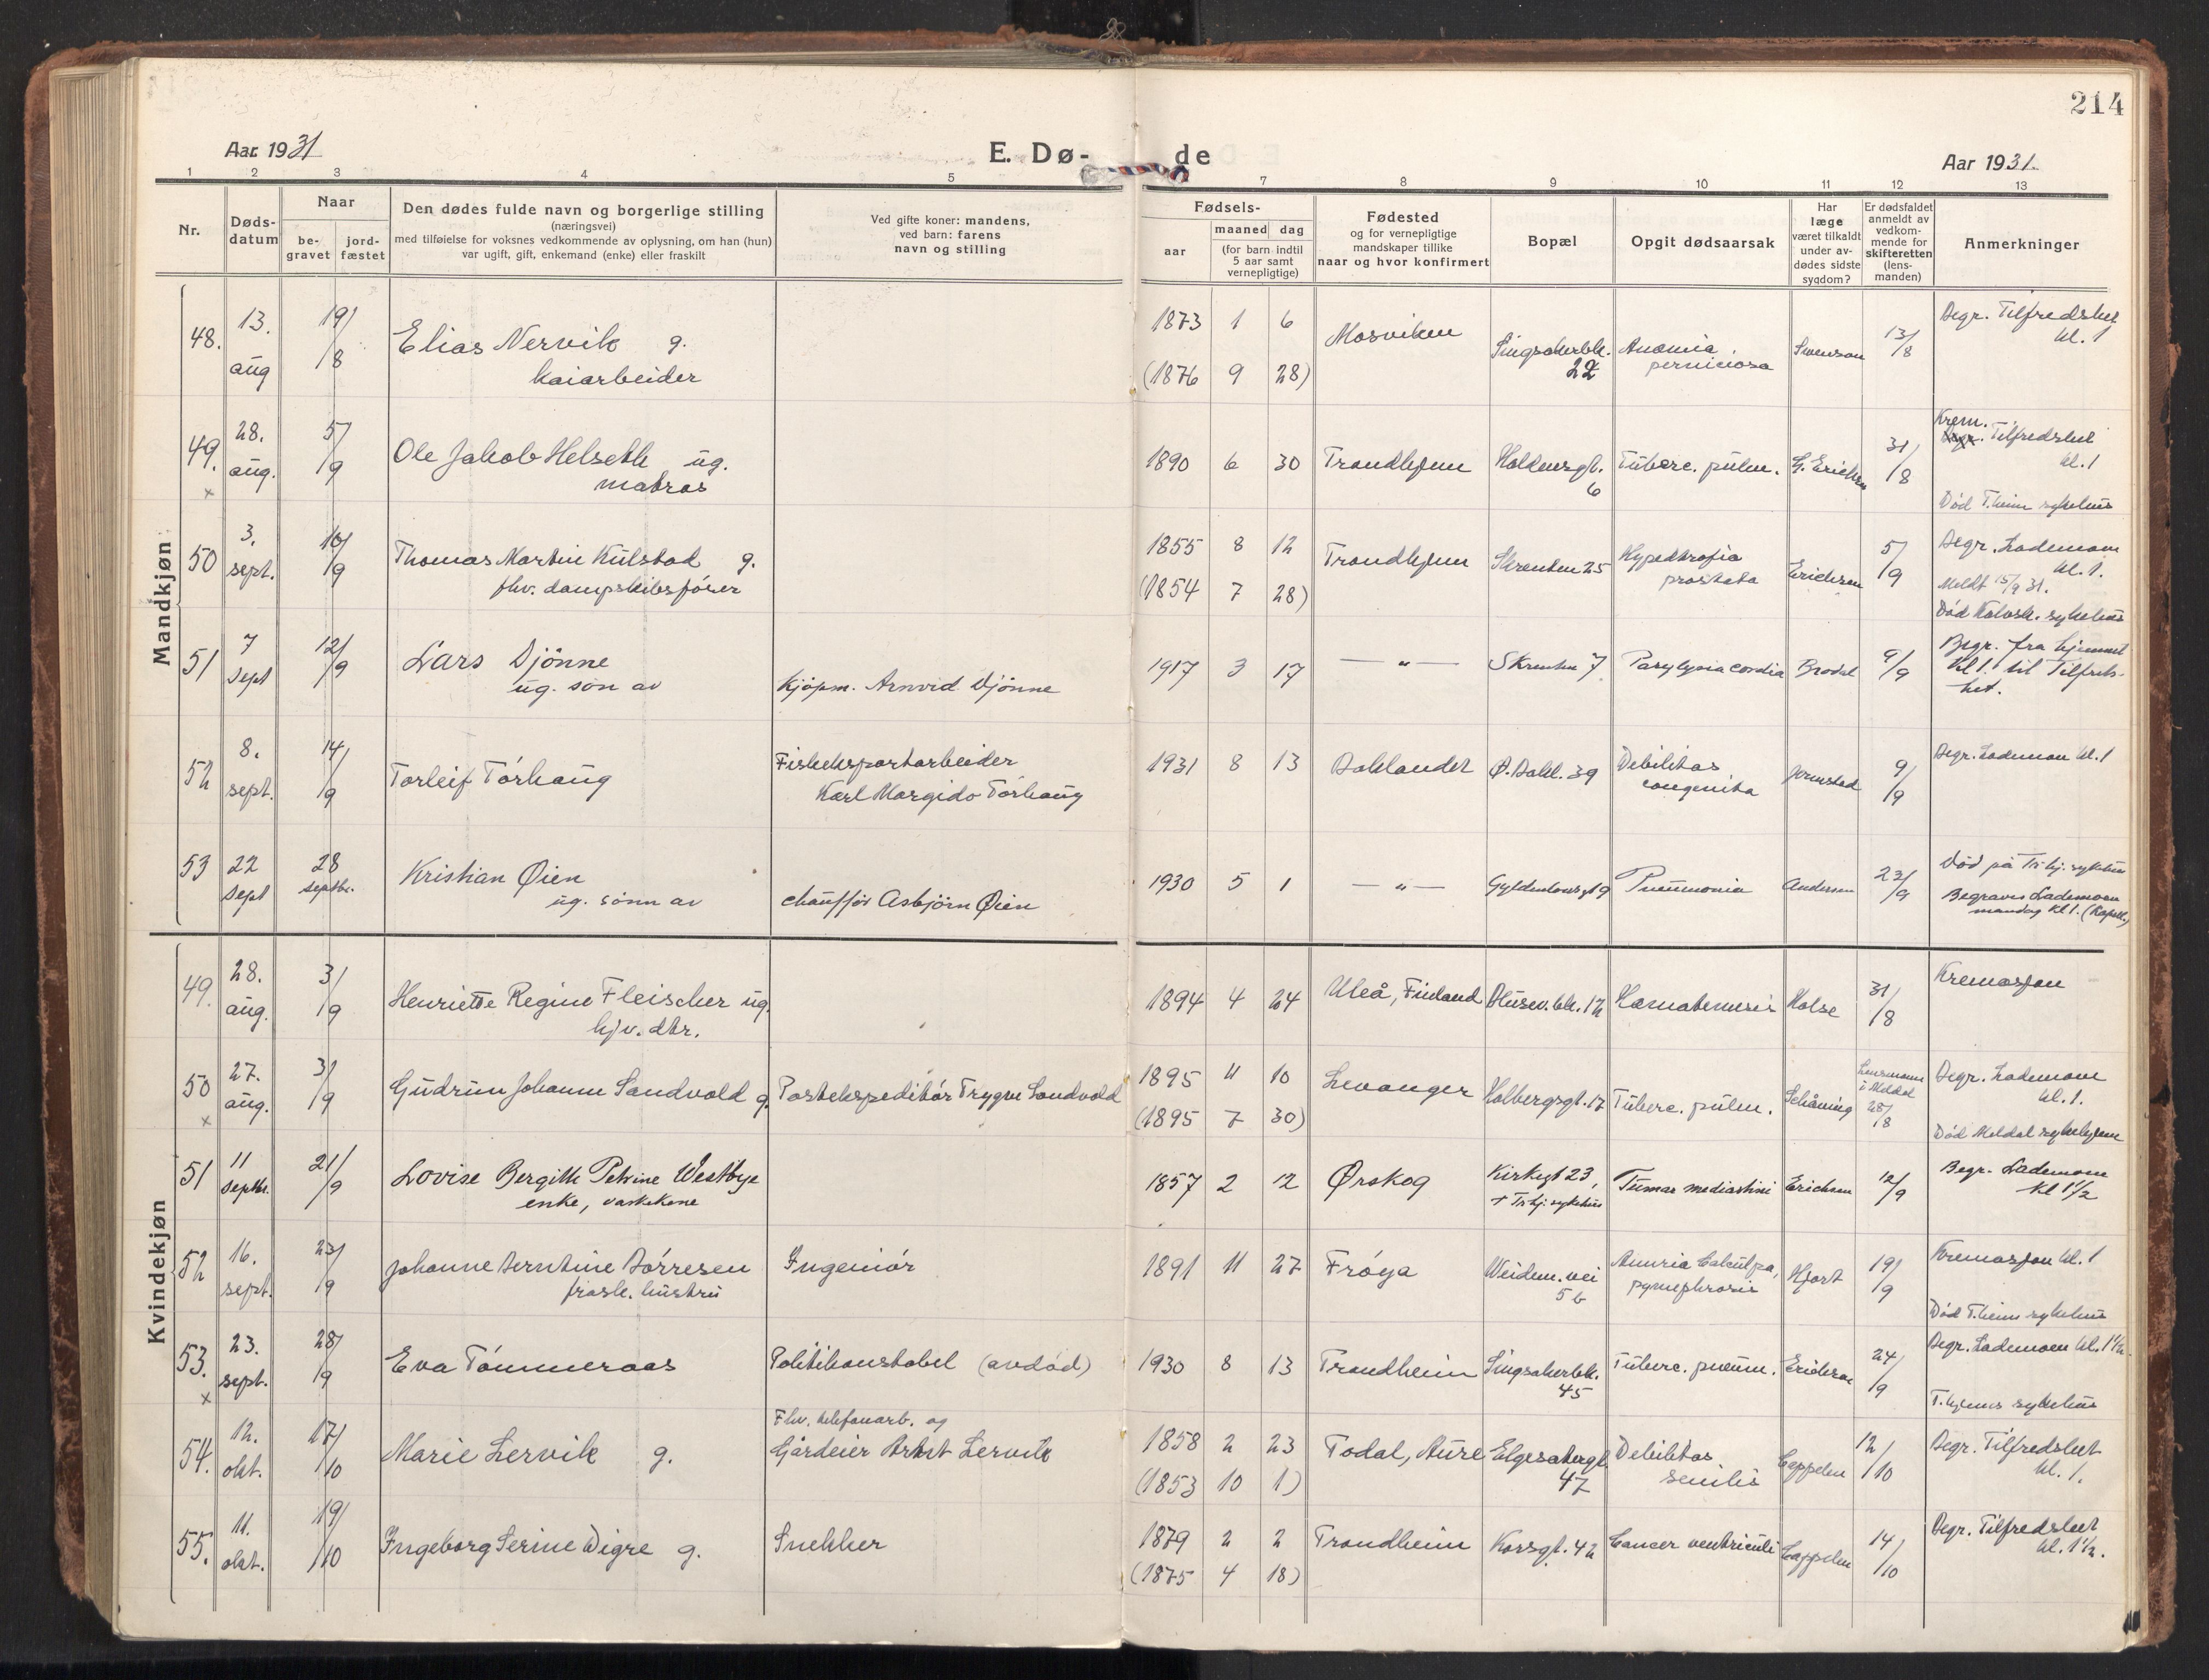 214
Aar 1931
E. Dø-
de
Aar 1931.
1 2 3 4 5 7 8 9 10 11 12 13
Nr.
Døds-
datum
Naar
be-
gravet
jord-
fæstet
Den dødes fulde navn og borgerlige stilling
(næringsvei)
med tilføielse for voksnes vedkommende av oplysning, om han (hun)
var ugift, gift, enkemand (enke) eller fraskilt
Ved gifte koner: mandens,
ved barn: farens
navn og stilling
Fødsels-
aar
maaned dag
(for barn indtil
5 aar samt
vernepligtige)
Fødested
og for vernepligtige
mandskaper tillike
naar og hvor konfirmert
Bopæl
Opgit dødsaarsak
Har
læge
været tilkaldt
under av-
dødes sidste
sygdom?
Er dødsfaldet
anmeldt av
vedkom-
mende for
skifteretten
(lens-
manden)
Anmerkninger
Mandkjøn
48. 13. aug 19/8 Elias Nervik g. 1873 1 6 Mosviken Singsakerbk. Anæmia Svenson 13/8 Begr. Tilfredshet
kaiarbeider (1876 9 28) 22 perniciosa kl. 1
49. 28. aug. 5/9 Ole Jakob Helseth ug. 1890 6 30 Trondhjem Tuberc. pulm. G. Erichsen 31/8 Krem. Tilfredshet
x matros 6 kl. 1
Død T.heim sykehus
50 3. sept. 10/9 Thomas Martin Kulstad g. 1855 8 12 Trondhjem Skrenten 25 Hypedtrofia Erichsen 5/9 Begr. Lademoen
fhv. dampskibsfører (1854 7 28) prostata kl. 1.
Meldt 15/9 31.
sykehus
51 7 Sept 12/9 Lars Djönne 1917 3 17 — " — Skrenten 7 Paralysia cordia Brodal 9/9 Begr. fra hjemmet
ug. søn av Kjöpm. Arnvid Djönne kl 1. til Tilfreds-
het.
52 8. sept. 14/9 Torleif Tórhaug Fiskeksportarbeider 1931 8 13 Baklandet Ø. Bakl. 39 Debilitas 9/9 Begr. Lademoen kl. 1
Karl Margido Tórhaug congenita
53 22 Sept 28 septbr. Kristian Øien 1930 5 1 — " — Gyldenløvesgt 9 Pneumonia Andersen 23/9 Död på Tr.hj. sykehus
ug. sönn av chauffør Asbjörn Øien Begraves Lademoen
mandag kl 1. (Kapell.)
Kvindekjøn
49. 28. aug. 3/9 Henriette Regine Fleischer ug. 1894 4 24 Uleå, Finland Duсев. bk. 12 Hæmatemesis Holse 31/8 Kremasjon
hjv. dtr.
50 27. aug. 3/9 Gudrun Johanne Sandvold g. Postekspeditör Trygve Sandvold 1895 11 10 Levanger Holbergsgt. 17 Tuberc. pulm. Schåning Lensmann i Meldal 28/8 Begr. Lademoen
x (1895 7 30) kl. 1.
Død Meldal sykehjem
51 11 Septbr. 21/9 Lovise Bergitte Petrine Westbye 1857 2 12 Ørskog Kirkegt 23, Tumar mediastini Erichsen 12/9 Begr. Lademoen
enke, vaskekone † Tr.hj. sykehus kl 1 1/2
52 16. sept. 23/9 Johanne Berntine Børresen Ingeniør 1891 11 27 Frøya Weidem. vei Hjort 19/9 Kremasjon kl. 1
frask. hustru 5 b pyonephrosis
Død T.heim sykehus
53. 23. sept. 28/9 Eva Tømmeraas Politikonstabel (avdød) 1930 8 13 Trondheim Singsakerbk. Tuberc. pneum. Erichsen 24/9 Begr. Lademoen kl. 1 1/2.
x 45
T.hjems sykehus
Fhv. telefonarb. og
54. 12. okt. 17/10 Marie Lervik g. Gårdeier Lervik 1858 2 23 Todal, Aure Elgesetergt. Debilitas Cappelen 12/10 Begr. Tilfredshet
(1853 10 1) 47 senilis kl. 1.
55. 11. okt. 19/10 Ingeborg Serine Digre g. Snekker 1879 2 2 Trondheim Korsgt. 42 Cancer ventriculi Cappelen 14/10 Begr. Tilfredshet
(1875 4 18) kl. 1 1/2.